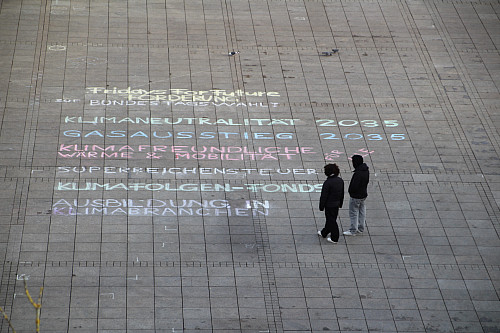 Fridays For Future
FORDERUNGEN
zur BUNDESTAGSWAHL:
KLIMANEUTRALITÄT 2035
GASAUSSTIEG 2035
KLIMAFREUNDLICHE
WÄRME & MOBILITÄT
SUPERREICHENSTEUER
KLIMAFOLGEN-FONDS
AUSBILDUNG IN
KLIMABRANCHEN